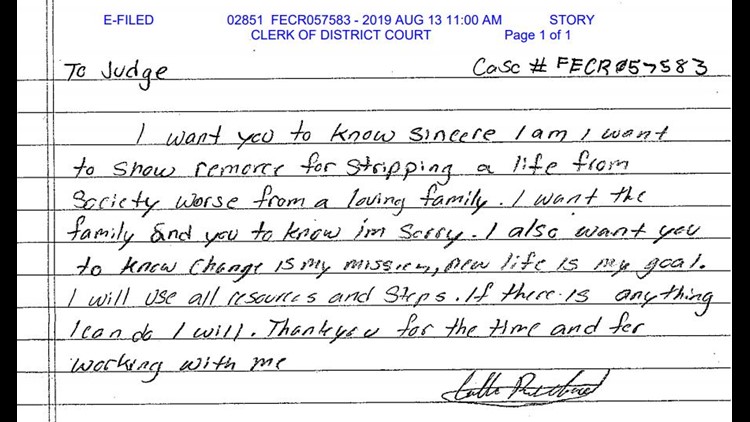 E-FILED 02851 FECR057583 - 2019 AUG 13 11:00 AM STORY
CLERK OF DISTRICT COURT Page 1 of 1
To Judge Case # FECR057583
I want you to know sincere I am I want
to show remorce for stripping a life from
society worse from a loving family. I want the
family and you to know im sorry. I also want you
to know change is my mission, new life is my goal.
I will use all resources and steps. If there is anything
I can do I will. Thankyou for the time and for
working with me